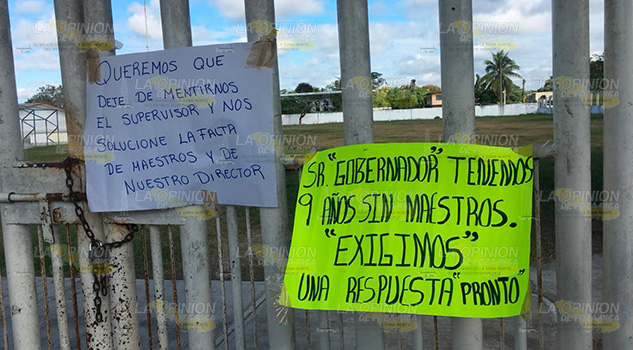 QUEREMOS QUE
DEJE DE MENTIRNOS
EL SUPERVISOR Y NOS
SOLUCIONE LA FALTA
DE MAESTROS Y DE
NUESTRO DIRECTOR
SR. "GOBERNADOR" TENEMOS
9 AÑOS SIN MAESTROS.
"EXIGIMOS"
UNA RESPUESTA "PRONTO"
LA OPINION
DE POZA RICA